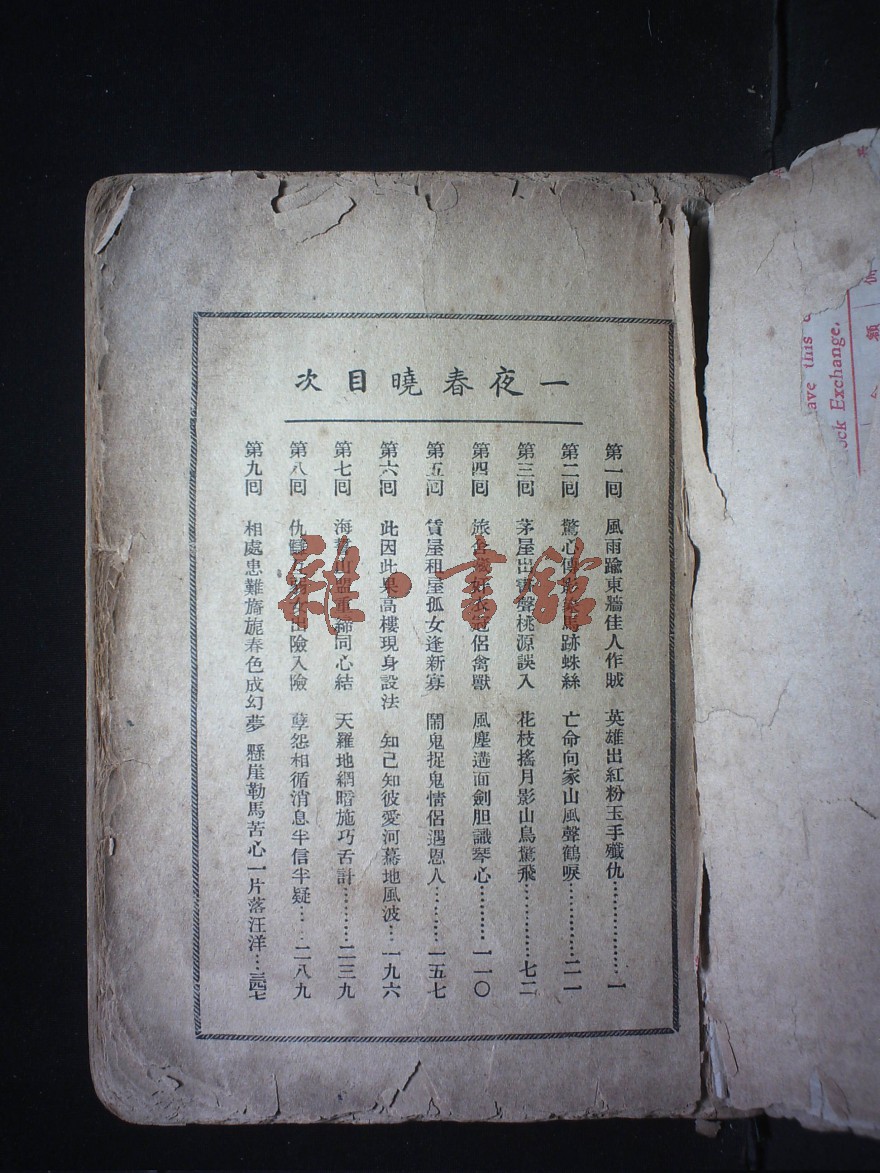 一夜春曉目次
第一回 風雨踰東牆佳人作賊 英雄出紅粉玉手殲仇………………一
第二回 驚心傳影馬跡蛛絲 亡命向家山風聲鶴唳…………二一
第三回 茅屋出書聲桃源誤入 花枝搖月影山鳥驚飛…………七二
第四回 旅舍奸衣冠侶禽獸 風塵遘面劍胆識琴心………一一〇
第五回 賃屋租屋孤女逢新寡 鬧鬼捉鬼情侶遇恩人………一五七
第六回 此因此果高樓現身設法 知己知彼愛河驀地風波…一九六
第七回 海誓山盟重締同心結 天羅地網暗施巧舌計………二三九
第八回 仇讎弱女出險入險 孽怨相循消息半信半疑……二八九
第九回 相處患難旖旎春色成幻夢 懸崖勒馬苦心一片落汪洋…三四七
雜·書館
ave this
ock Exchange,
額